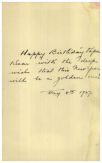 Happy Birthday Papa
Dear with the deep
wish that this
will be a golden
Aug 4th 1927